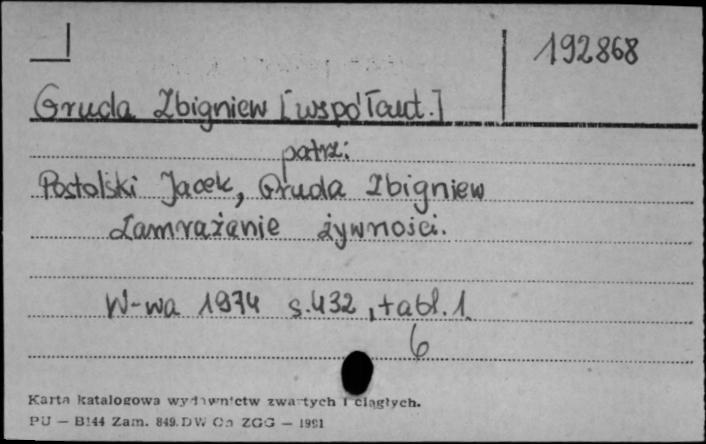 192868
Gruda Zbigniew [współaut.]
patrz:
Postolski Jacek, Gruda Zbigniew
Zamrażanie żywności.
W-wa 1974 s.432, tabl.1.
6
Karta katalogowa wydawnictw zwartych i ciągłych.
PU — B144 Zam. 849.DW Cn ZGG — 1981